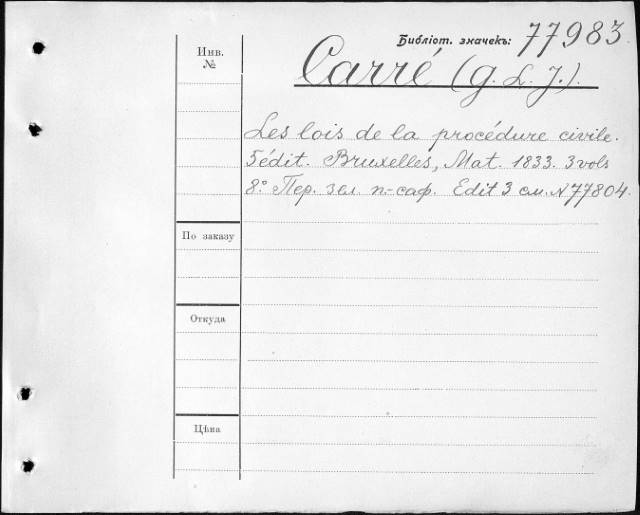 Библіот. значекъ: 77983
Инв. №
Carré (G. L. J.).
Les lois de la procédure civile.
5 édit. Bruxelles, Mat. 1833. 3 vols
8º. Пер. зел. п.-саф. Edit 3 см. N 77804.
По заказу
Откуда
Цѣна